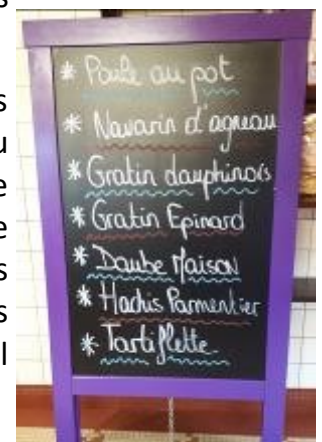 s
s
u
e
e
s
s
l
* Poule au pot
* Navarin d'agneau
* Gratin dauphinois
* Gratin Epinard
* Daube Maison
* Hachis Parmentier
* Tartiflette